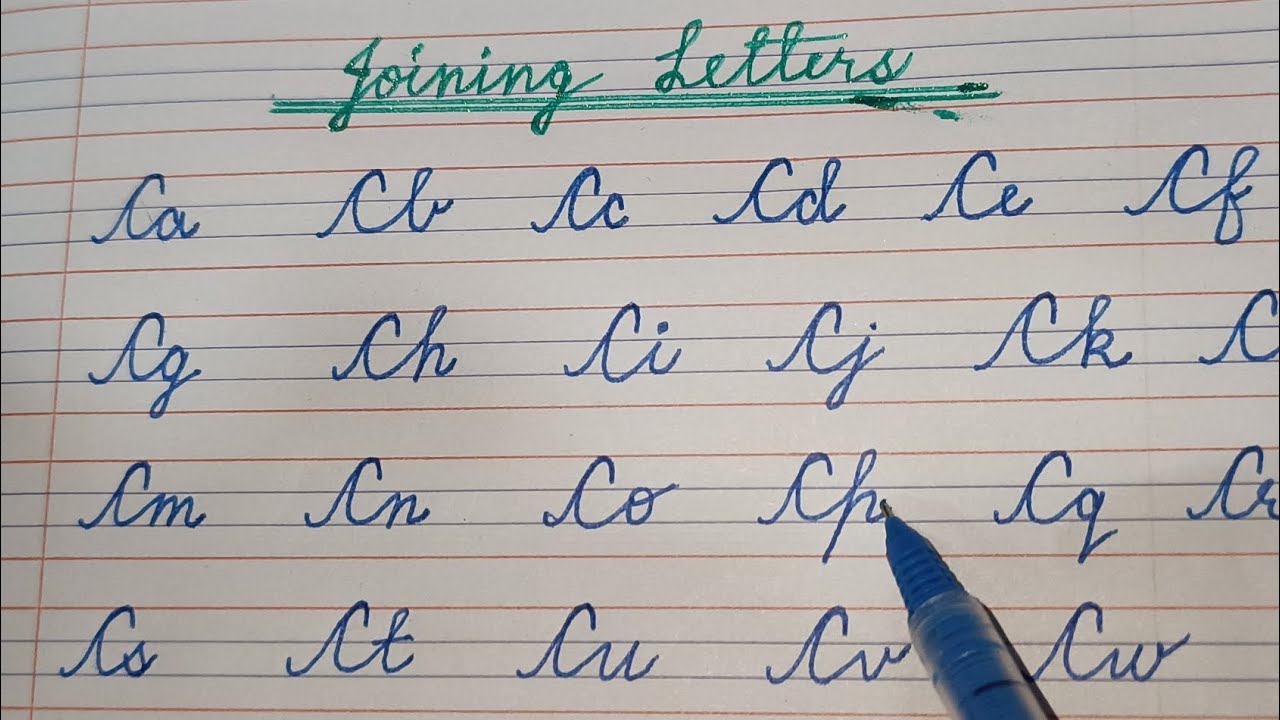 Joining Letters
Ca Cb Cc Cd Ce Cf
Cg Ch Ci Cj Ck C
Cm Cn Co Cp Cq Cr
Cs Ct Cu Cv Cw